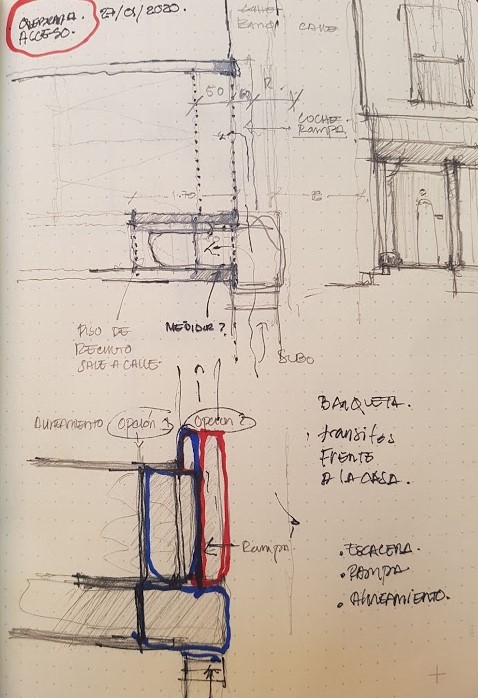 ACCESO.
27/01/2020.
CALLE
50
R
COCHE
RAMPA
1.70
PISO DE
RECINTO
SALE A CALLE
MEDIDOR?
SUBO
ALINEAMIENTO
Opción 1
Opción 2
Rampa
BANQUETA.
transitos
FRENTE
A LA CASA.
. ESCALERA.
. RAMPA
. ALINEAMIENTO.